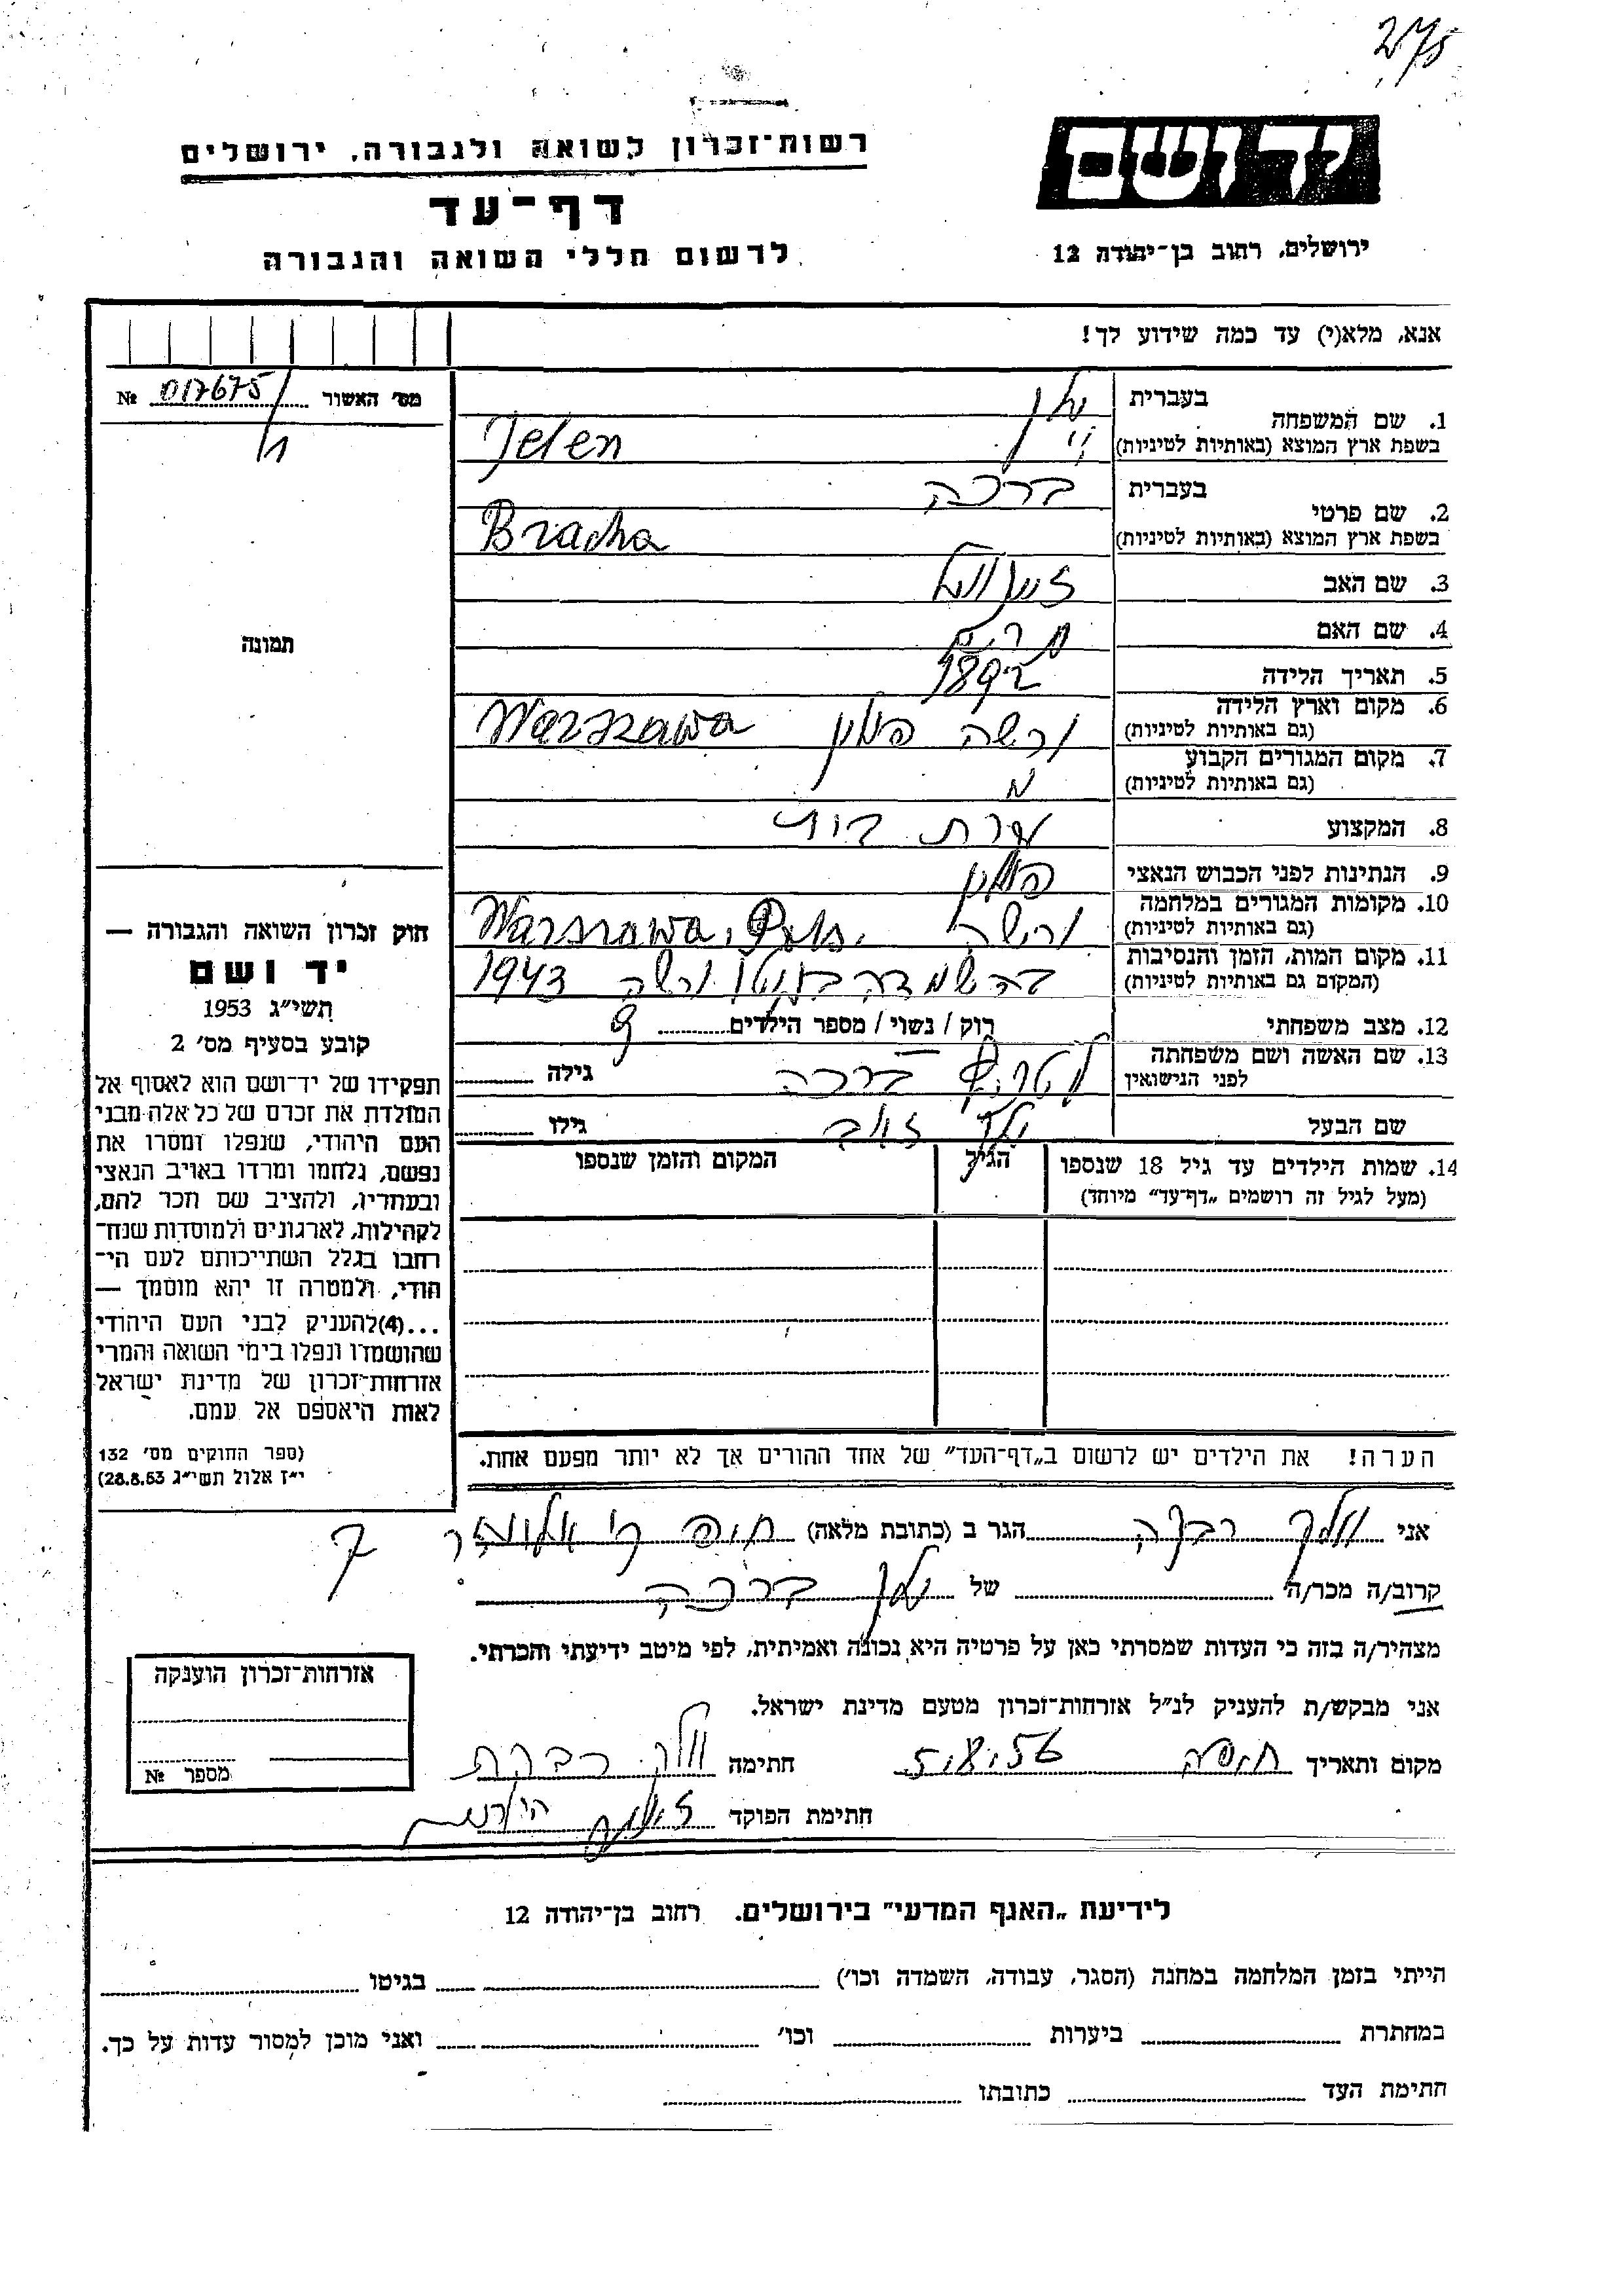 275
רשות־זכרון לשואה ולגבורה, ירושלים
יד ושם
דף־עד
לרשום חללי השואה והגבורה
ירושלים, רחוב בן־יהודה 12
אנא, מלא(י) עד כמה שידוע לך!
מס' האשור № 017675/
בעברית
1. שם המשפחה
בשפת ארץ המוצא (באותיות לטיניות) Jelen
בעברית ברכה
2. שם פרטי
בשפת ארץ המוצא (באותיות לטיניות) Bracha
3. שם האב
תמונה
4. שם האם מרים
5. תאריך הלידה 1892
6. מקום וארץ הלידה
(גם באותיות לטיניות) ורשה פולין Warszawa
7. מקום המגורים הקבוע
(גם באותיות לטיניות)
8. המקצוע עקרת בית
9. הנתינות לפני הכבוש הנאצי פולין
10. מקומות המגורים במלחמה
(גם באותיות לטיניות) ורשה Warszawa, Pols.
11. מקום המות, הזמן והנסיבות
(המקום גם באותיות לטיניות) בהשמדה בגטו ורשה 1943
12. מצב משפחתי רוק / נשוי / מספר הילדים 9
13. שם האשה ושם משפחתה
לפני הנישואין ברכה גילה
שם הבעל גילו
14. שמות הילדים עד גיל 18 שנספו הגיל המקום והזמן שנספו
(מעל לגיל זה רושמים „דף־עד" מיוחד)
חוק זכרון השואה והגבורה —
יד ושם
תשי"ג 1953
קובע בסעיף מס' 2
תפקידו של יד־ושם הוא לאסוף אל
המולדת את זכרם של כל אלה מבני
העם היהודי, שנפלו ומסרו את
נפשם, נלחמו ומרדו באויב הנאצי
ובעוזריו, ולהציב שם וזכר להם,
לקהילות, לארגונים ולמוסדות שנח־
רבו בגלל השתייכותם לעם הי־
הודי, ולמטרה זו יהא מוסמך —
...(4)להעניק לבני העם היהודי
שהושמדו ונפלו בימי השואה והמרי
אזרחות־זכרון של מדינת ישראל
לאות היאספם אל עמם.
(ספר החוקים מס' 132
י"ז אלול תשי"ג 28.8.53)
הערה! את הילדים יש לרשום ב„דף־העד" של אחד ההורים אך לא יותר מפעם אחת.
אני רבקה הגר ב (כתובת מלאה) חיפה 7
קרוב/ה מכר/ה של ברכה
מצהיר/ה בזה כי העדות שמסרתי כאן על פרטיה היא נכונה ואמיתית, לפי מיטב ידיעתי והכרתי.
אני מבקש/ת להעניק לנ"ל אזרחות־זכרון מטעם מדינת ישראל.
מקום ותאריך חיפה 5.8.56 חתימה
חתימת הפוקד
אזרחות־זכרון הוענקה
מספר №
לידיעת „האגף המדעי" בירושלים. רחוב בן־יהודה 12
הייתי בזמן המלחמה במחנה (הסגר, עבודה, השמדה וכו') בגיטו
במחתרת ביערות וכו' ואני מוכן למסור עדות על כך.
חתימת העד כתובתו